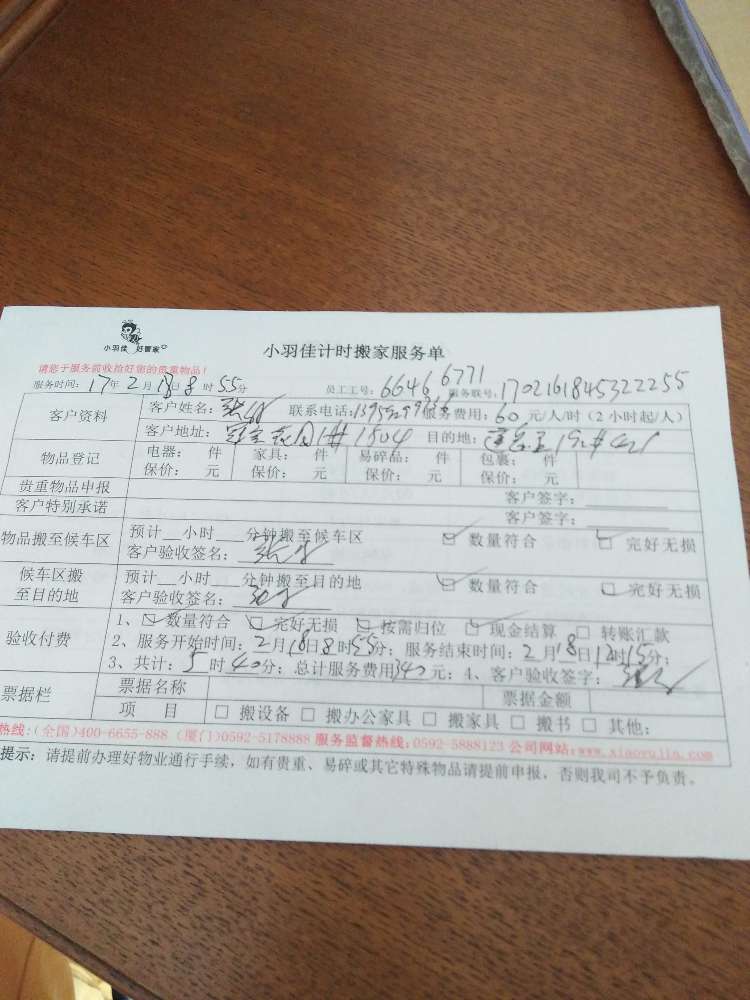 小羽佳 好管家
小羽佳计时搬家服务单
请您于服务前收拾好您的贵重物品！
服务时间：17年2月18日8时55分 员工工号：6646 6771 服务联号：1702161845322255
客户资料 客户姓名： 联系电话： 服务费用：60元/人/时（2小时起/人）
客户地址： 1#1504 目的地：
物品登记 电器： 件 家具： 件 易碎品： 件 包裹： 件
保价： 元 保价： 元 保价： 元 保价： 元
贵重物品申报 客户签字：
客户特别承诺 客户签字：
物品搬至候车区 预计__小时___分钟搬至候车区 ☑ 数量符合 ☑ 完好无损
客户验收签名：
候车区搬至目的地 预计__小时___分钟搬至目的地 ☑ 数量符合 ☐ 完好无损
客户验收签名：
验收付费 1、☑ 数量符合 ☑ 完好无损 ☑ 按需归位 ☑ 现金结算 ☐ 转账汇款
2、服务开始时间：2月18日8时55分；服务结束时间：2月18日12时15分；
3、共计：时40分；总计服务费用340元；4、客户验收签字：
票据栏 票据名称 票据金额
项 目 ☐ 搬设备 ☐ 搬办公家具 ☐ 搬家具 ☐ 搬书 ☐ 其他：
热线：（全国）400-6655-888（厦门）0592-5178888 服务监督热线：0592-5888123 公司网站：www.xiaoyujia.com
提示：请提前办理好物业通行手续，如有贵重、易碎或其它特殊物品请提前申报，否则我司不予负责。